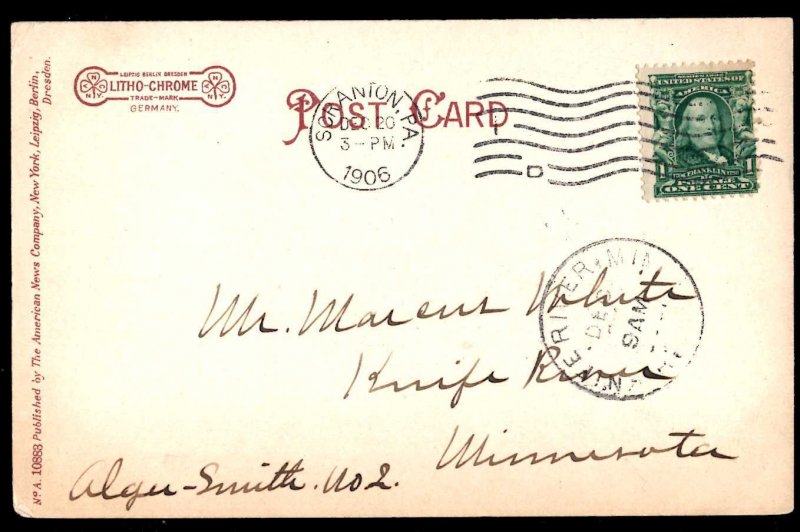 LEIPZIG BERLIN DRESDEN
LITHO-CHROME
TRADE-MARK
GERMANY.
POST CARD
SCRANTON, PA.
DEC 20
3-PM
1906
D
UNITED STATES OF AMERICA
1 FRANKLIN 1
POSTAGE
ONE CENT
RIVER, MIN
DEC
9AM
Mr. Marcus White
Knife River
Minnesota
Alger-Smith. No 2.
No A. 10888 Published by The American News Company, New York, Leipzig, Berlin,
Dresden.